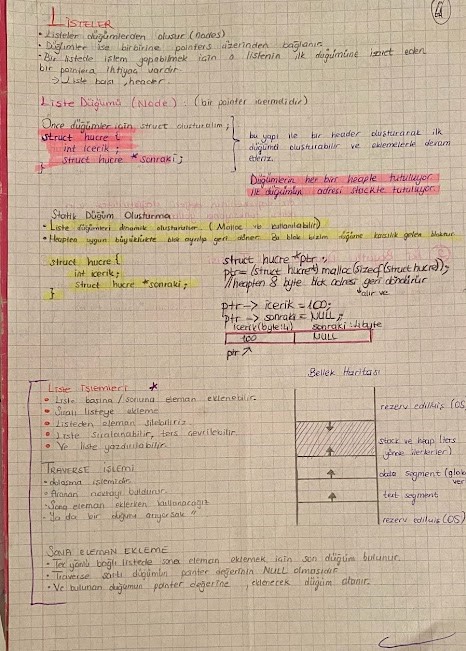 LİSTELER
• Listeler düğümlerden oluşur (nodes)
• Düğümler ise birbirine pointers üzerinden bağlanır
• Bir listede işlem yapabilmek için o listenin ilk düğümüne işaret eden
bir pointera ihtiyaç vardır
→ Liste başı, header
Liste Düğümü (Node) : (bir pointer içermelidir)
Önce düğümler için struct oluşturalım;
struct hucre {
int icerik ;
struct hucre * sonraki ;
}
bu yapı ile bir header oluşturarak ilk
düğümü oluşturabilir ve eklemelerle devam
ederiz.
Düğümlerin her biri heapte tutuluyor
ilk düğümün adresi stackte tutuluyor
Statik Düğüm Oluşturma
• Liste düğümleri dinamik oluşturulur (Malloc kullanılabilir)
• Heapten uygun büyüklükte blok ayrılıp geri döner. Bu blok bizim düğüme karşılık gelen bloktur
struct hucre {
int icerik;
struct hucre * sonraki;
}
struct hucre *ptr ;
ptr= (struct hucre*) malloc(sizeof(struct hucre));
//heapten 8 byte blok adresi geri döndürür
alır ve
ptr → icerik = 100;
ptr → sonraki = NULL;
icerik(byte:4) sonraki: 4byte
100 NULL
ptr ↗
Bellek Haritası
rezerv edilmiş (OS)
stack ve heap (ters
yönde ilerlerler)
data segment (glob
ver
text segment
rezerv edilmiş (OS)
Liste İşlemleri *
• Liste başına / sonuna eleman eklenebilir.
• Sıralı listeye ekleme
• Listeden eleman silebiliriz
• Liste sıralanabilir, ters çevrilebilir.
• Ve liste yazdırılabilir.
TRAVERSE İŞLEMİ
• dolaşma işlemidir.
• Aranan noktayı bulduğunu
• Sona eleman eklerken kullanacağız
• Ya da bir düğümü arıyorsak ?
SONA ELEMAN EKLEME
• Tek yönlü bağlı listede sona eleman eklemek için son düğüm bulunur.
• Traverse şartı düğümün pointer değerinin NULL olmasıdır
• Ve bulunan düğümün pointer değerine , eklenecek düğüm atanır.